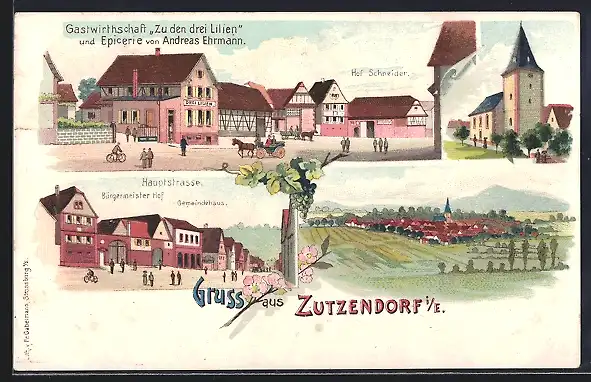 Gastwirthschaft „Zu den drei Lilien"
und Epicerie von Andreas Ehrmann.
Hof Schneider.
DREI LILIEN
Hauptstrasse.
Bürgermeister Hof
Gemeindehaus.
Gruss aus ZUTZENDORF i/E.
Lith. v. Fr. Gubemann, Strassburg i/E.